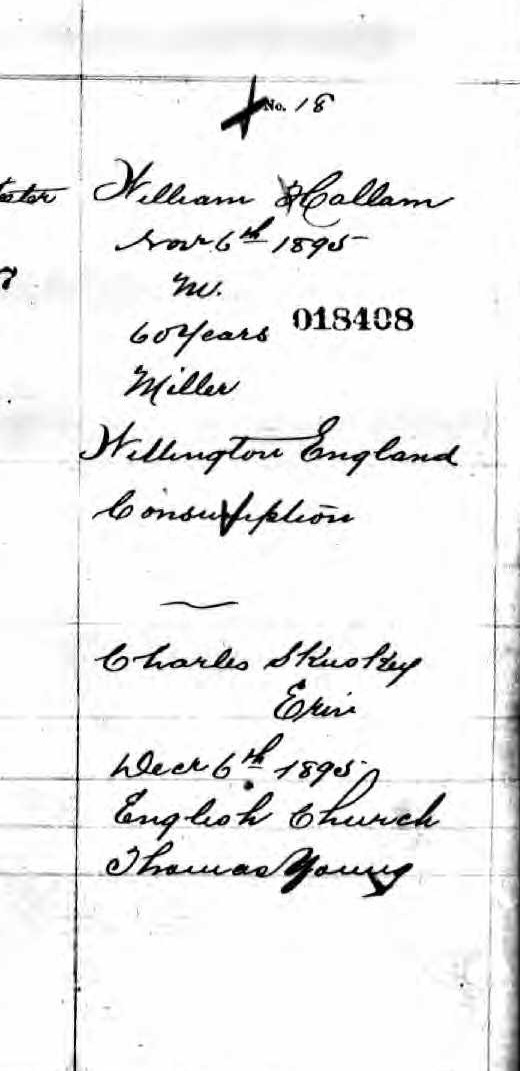 No. 18
William Hallam
Novr 6th 1895
M.
60 Years
018408
Miller
Willington England
Consumption
Charles
Erin
Decr 6th 1895
English Church
Thomas Young